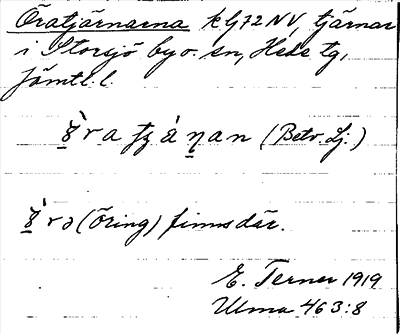 Öratjärnarna k G72 NV, tjärnar
i Storsjö by o. sn, Hede tg,
Jämtl. l.
(Betv. Lj.)
(Öring) finns där.
E. Terner 1919
Ulma 463:8